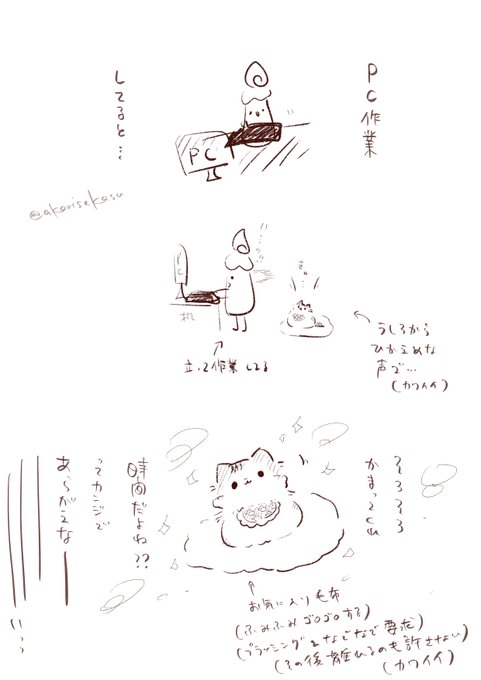 PC作業
してると…
PC
@akorisekosu
PC
机
立って作業してる
うしろから
ひかえめな
声で…
(カワイイ)
そろそろ
かまってくれ
時間だよね??
ってカンジで
あらがえなーーい…
お気に入り毛布
(ふみふみゴロゴロする)
(ブラッシングとなでなで要求)
(その後離れるのも許さない)
(カワイイ)